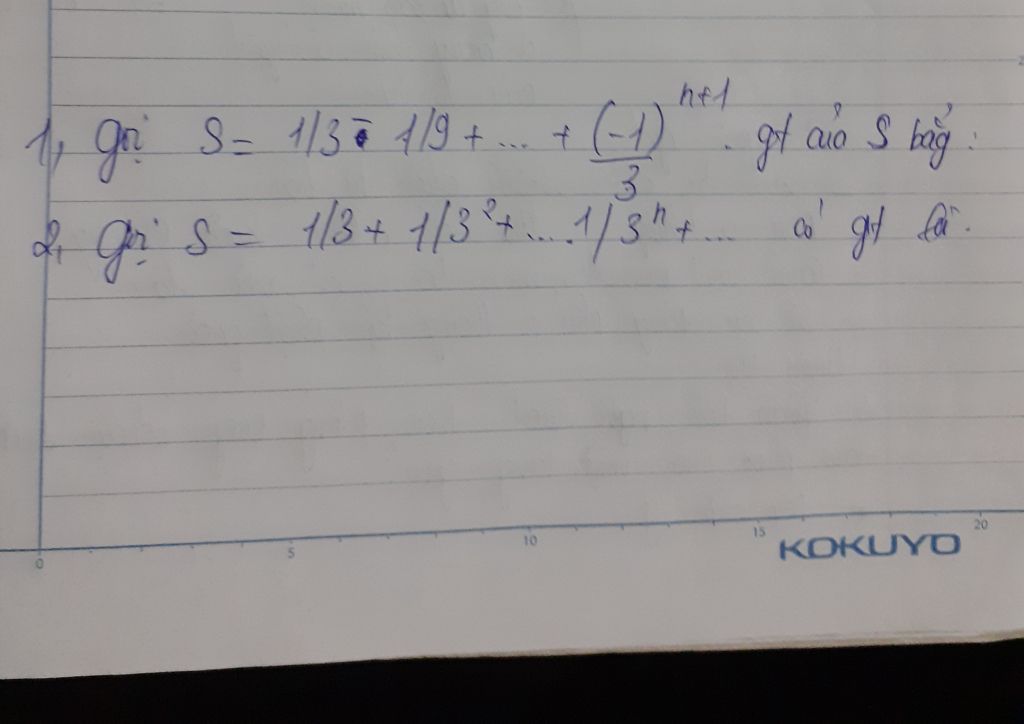 1, Gọi S = 1/3 - 1/9 + ... + (-1)^{n+1}/3 . gt của S bằng:
2, Gọi S = 1/3 + 1/3² + ....1/3ⁿ + ... có gt là.
0 5 10 15 20
KOKUYO